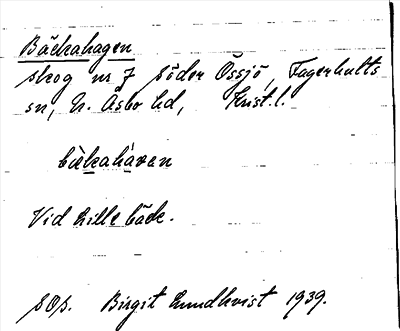 Bäckahagen
skog nr 7 söder Össjö, Fagerhults
sn, N. Åsbo hd, Krist. l.
bä̀kahàven
Vid Lille bäck.
sOp. Birgit Lundkvist 1939.